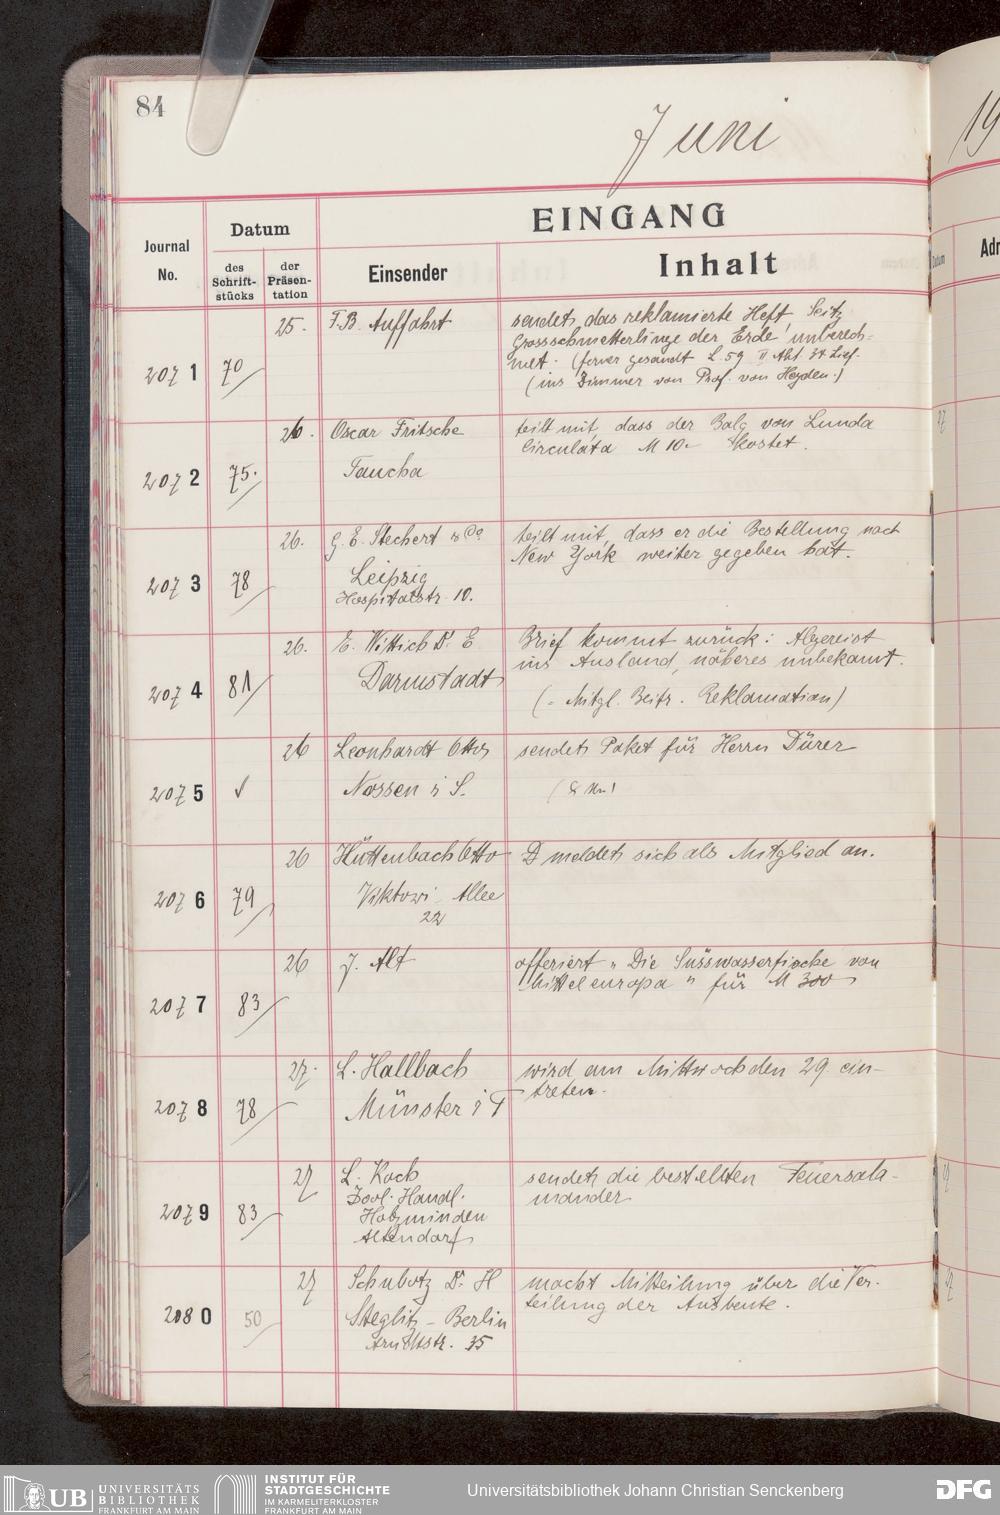 84
Juni
19
EINGANG
Journal No.
Datum
des Schriftstücks
der Präsentation
Einsender
Inhalt
Datum
Adr
2071
70
25.
F.B. Auffahrt
sendet das reklamierte Heft Seitz
Grossschmetterlinge der Erde unberech=
net. (ferner gesandt L. 59 II Abt. 34 Lief.
(ins Zimmer von Prof. von Heyden.)
2072
75.
26.
Oscar Fritsche
Taucha
teilt mit, dass der Balg von Lunda
Circulata M 10.- kostet.
2073
78
26.
G. E. Stechert & Co
Leipzig
Hospitalstr. 10.
teilt mit, dass er die Bestellung nach
New York weiter gegeben hat.
2074
81
26.
E. Wittich Dr. E
Darmstadt
Brief kommt zurück: Abgereist
ins Ausland, näheres unbekannt.
(= Mitgl. Beitr. Reklamation)
2075
✓
26
Leonhardt Otto
Nossen i S.
sendet Paket für Herrn Dürer
2076
79
26
Hüttenbach Otto
Viktori Allee
22
D meldet sich als Mitglied an.
2077
83
26
J. Alt
offeriert „Die Süsswasserfische von
Mitteleuropa" für M 300
2078
78
27.
L. Hallbach
Münster i T
wird am Mittwoch den 29 ein-
treten.
2079
83
27
L. Koch
Zool. Handl.
Holzminden
Altendorf
sendet die bestellten Feuersala-
mander
2080
50
27
Schubotz Dr. H
Steglitz - Berlin
Arndtstr. 35
macht Mitteilung über die Ver-
teilung der Ausbeute.
UB
UNIVERSITÄTS
BIBLIOTHEK
FRANKFURT AM MAIN
INSTITUT FÜR
STADTGESCHICHTE
IM KARMELITERKLOSTER
FRANKFURT AM MAIN
Universitätsbibliothek Johann Christian Senckenberg
DFG